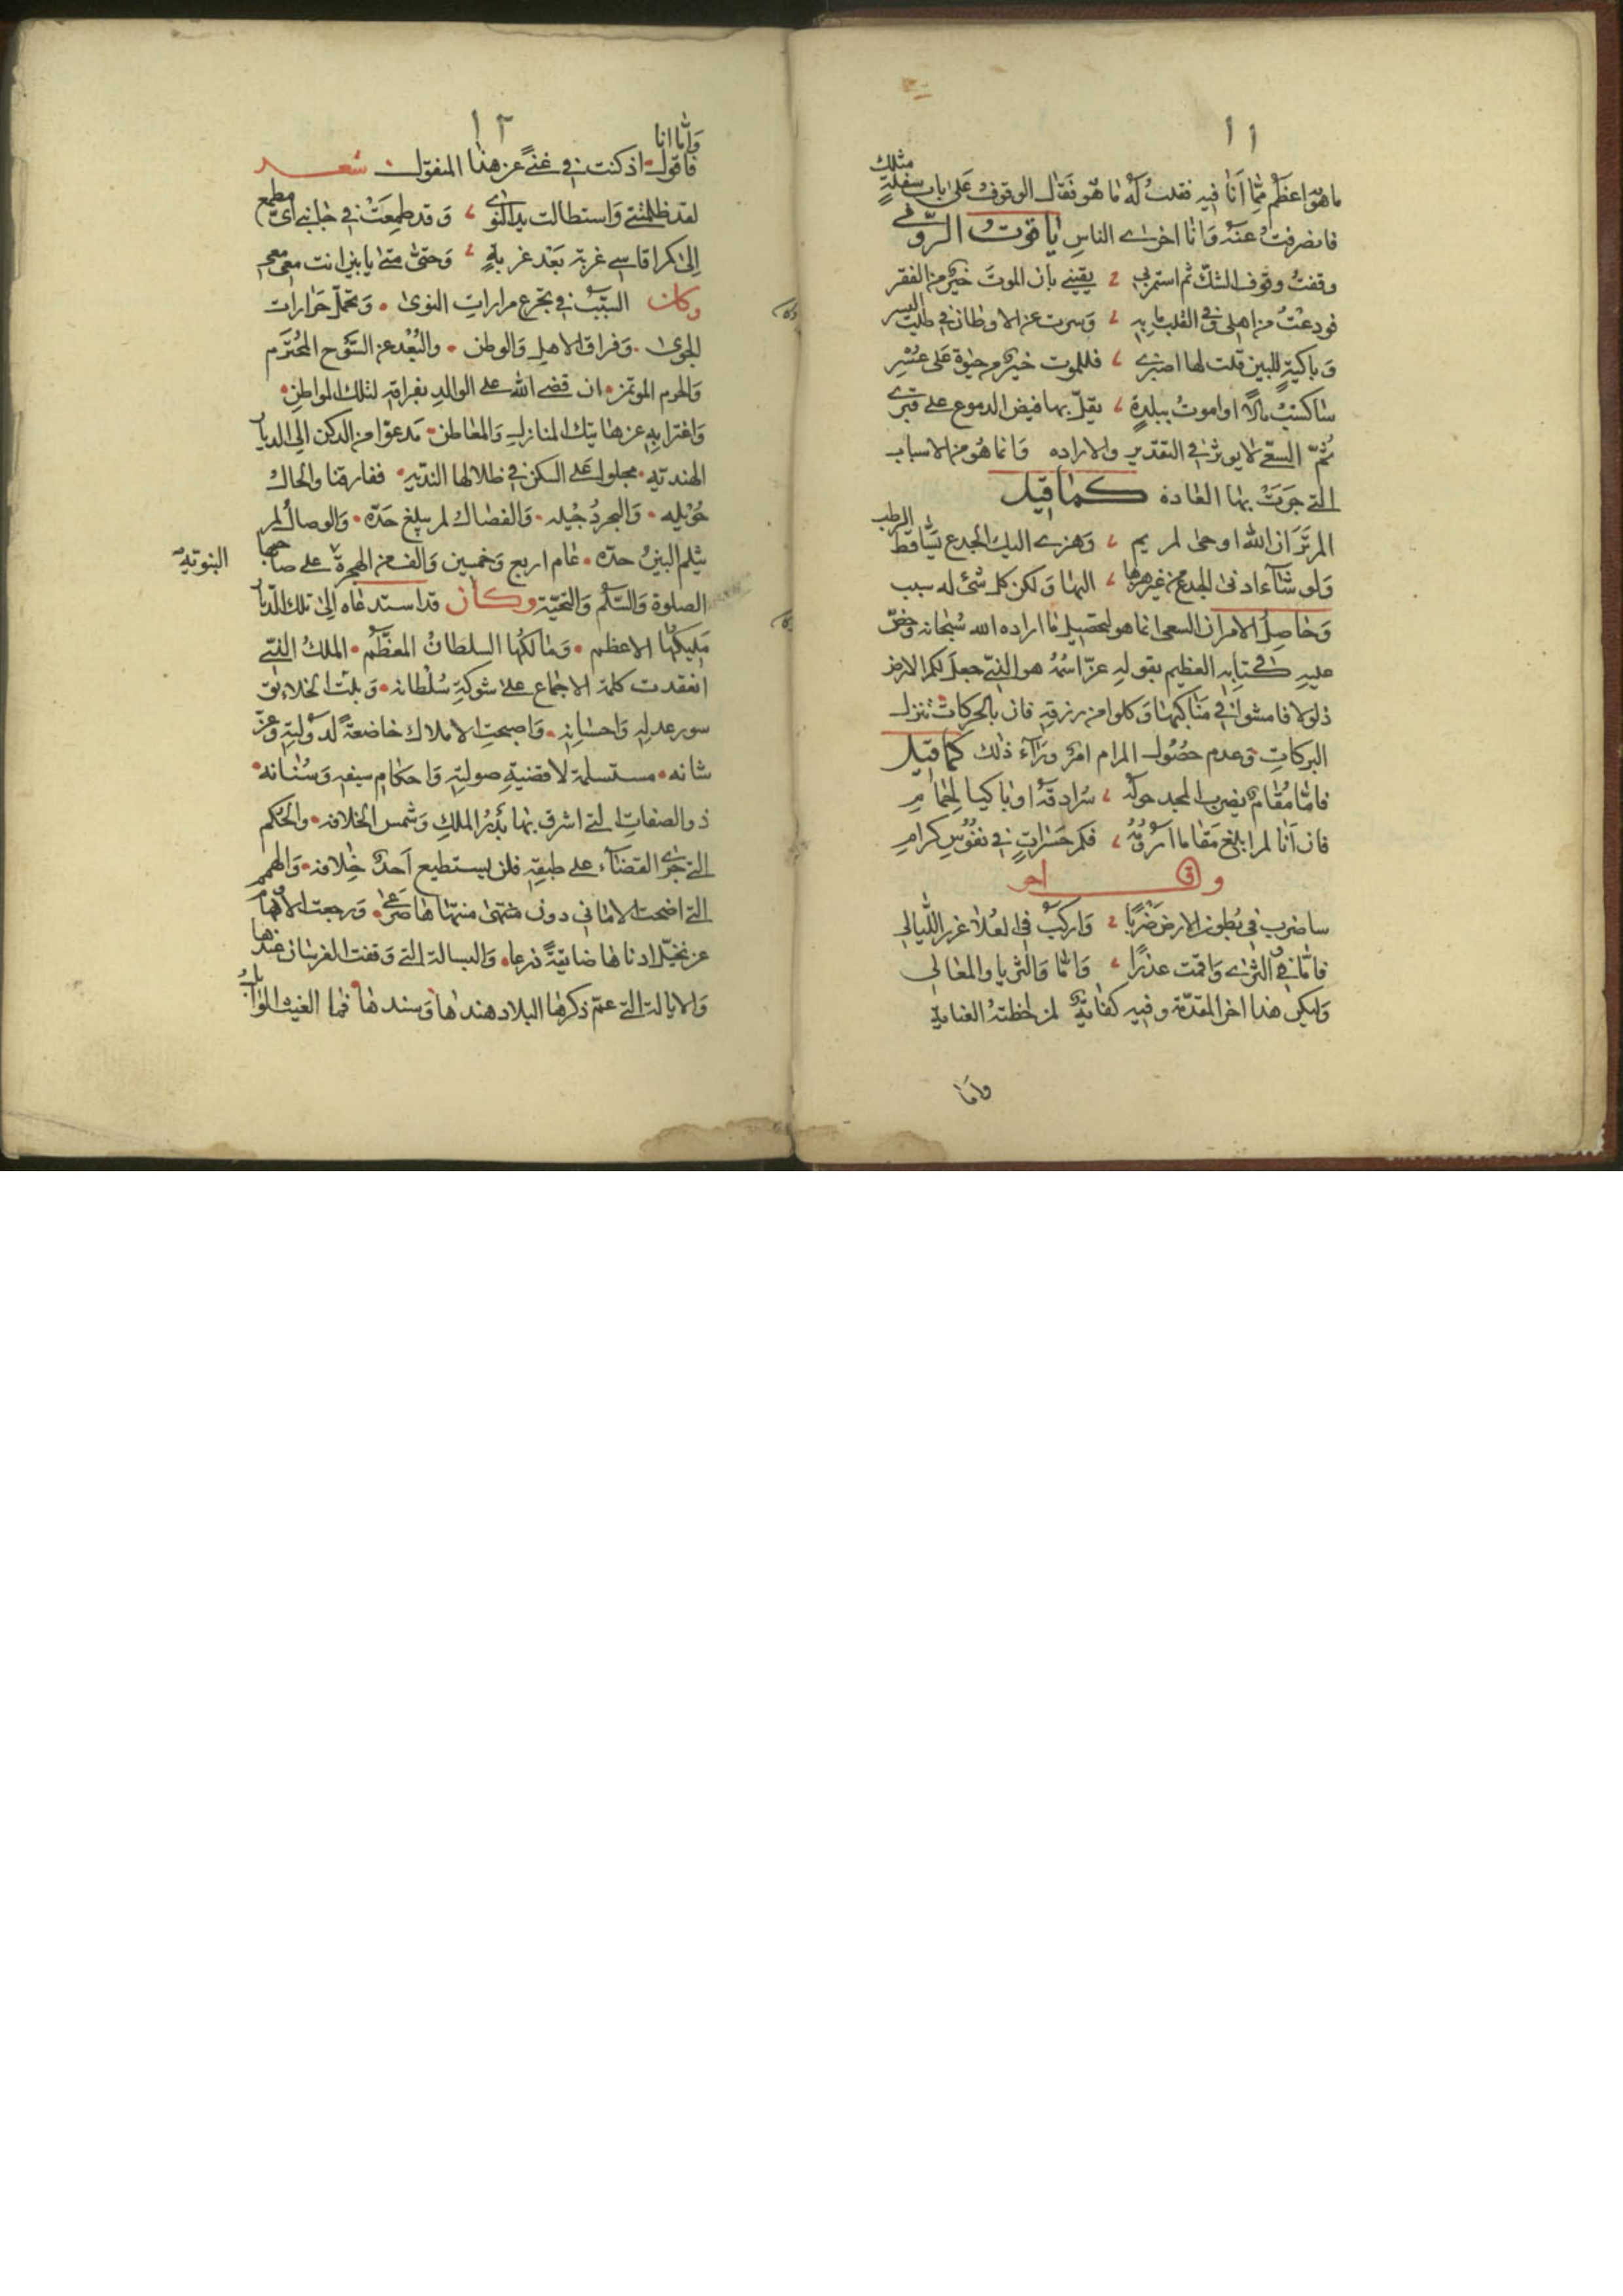 ١١
ما هو اعظم مما انا فيه فقلت له ما هو فقال الوقوف على باب سفلة مثلك
فانصرفت عنه وانا اخزى الناس ياقوت الرومي
وقفت وقوف الشك ثم استمر بي يقيني بان الموت خير من الفقر
فودعت من اهلي وفي القلب ما به وسرت عن الاوطان في طلب اليسر
وباكية للبين قلت لها اصبري فللموت خير من حيوة على عسر
ساكسب مالا او اموت ببلدة يقل بها فيض الدموع على قبري
ثم السعي لا يوثر في التقدير والاراده وانما هو من الاسباب
التي جرت بها العادة كما قيل
الم تر ان الله اوحى لمريم وهزي اليك الجدع يساقط الرطب
ولو شاء ادنى الجدع من غير هزها اليها ولكن كل شئ له سبب
وحاصل الامر ان السعي انما هو لتحصيل ما اراده الله سبحانه وحض
عليه في كتابه العظيم بقوله عز اسمه هو الذي جعل لكم الارض
ذلولا فامشوا في مناكبها وكلوا من رزقه فان بالحركات تنزل
البركات وعدم حصول المرام امر وراء ذلك كما قيل
فاما مقام يضرب المجد حوله سرادقه او باكيا لحمام
فان انا لم ابلغ مقاما ارومه فكم حسرات في نفوس كرام
وقال اخر
ساضرب في بطون الارض ضربا واركب في العلا غرر الليالي
فاما في الثرى واقمت عذرا واما والثريا والمعالي
وليكن هذا اخر المقدمة وفيه كفاية لمن لحظته العناية
واما
١٢
واما انا
فاقول اذ كنت في غنى عن هذا المنقول شعر
لقد ظلمتني واستطالت يد النوى وقد طمعت في جانبي اي مطمع
الى كم اقاسي غربة بعد غربة وحتى متى يا بين انت معي معي
وكان السبب في تجرع مرارات النوى وتحمل حرارات
الجوى وفراق الاهل والوطن والبعد عن السوح المحترم
والحرم الموتمن ان قضى الله على الوالد بفراقه لتلك المواطن
واغترابه عن هاتيك المنازل والمعاطن مدعوا من الدكن الى الديار
الهندية مجلوا على السكن في ظلالها الندية ففارقنا والحال
حويله والبحرد جيله والفصال لم يبلغ حده والوصال لم
يثلم البين حده عام اربع وخمسين والف من الهجرة على صاحبها
النبوية
الصلوة والسلم والتحية وكان قد استدعاه الى تلك الديار
مليكها الاعظم ومالكها السلطان المعظم الملك الذي
انعقدت كلمة الاجماع على شوكة سلطانه الخلايق
سور عدله واحسانه واصبحت الاملاك خاضعة لدولته وعز
شانه مستسلمة لاقضية صولته واحكام سيفه وسنانه
ذو الصفات التي اشرق بها بدر الملك وشمس الخلافه والحكم
التي جرى القضاء على طبقه فلن يستطيع احد خلافه والهمم
التي اضحت الاماني دون منتهى منتهاها صرعى ورجعت الاوهام
عن تخيل ادناها ضايقة ذرعا والبسالة التي وقفت الفرسان عندها
والايالة التي عم ذكرها البلاد هندها وسندها فما الغيث الموا